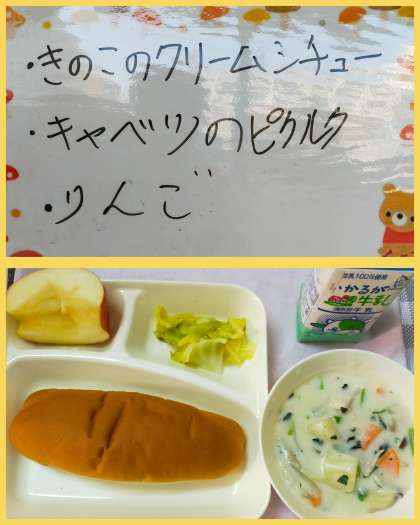 ・きのこのクリームシチュー
・キャベツのピクルク
・りんご
生乳100%使用
いかるが
牛乳